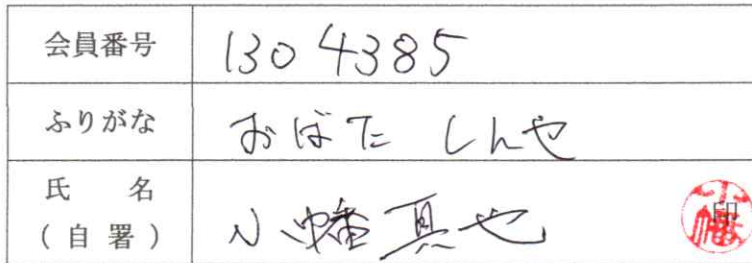 会員番号 1304385
ふりがな おばた しんや
氏名 小幡真也 印
(自署)